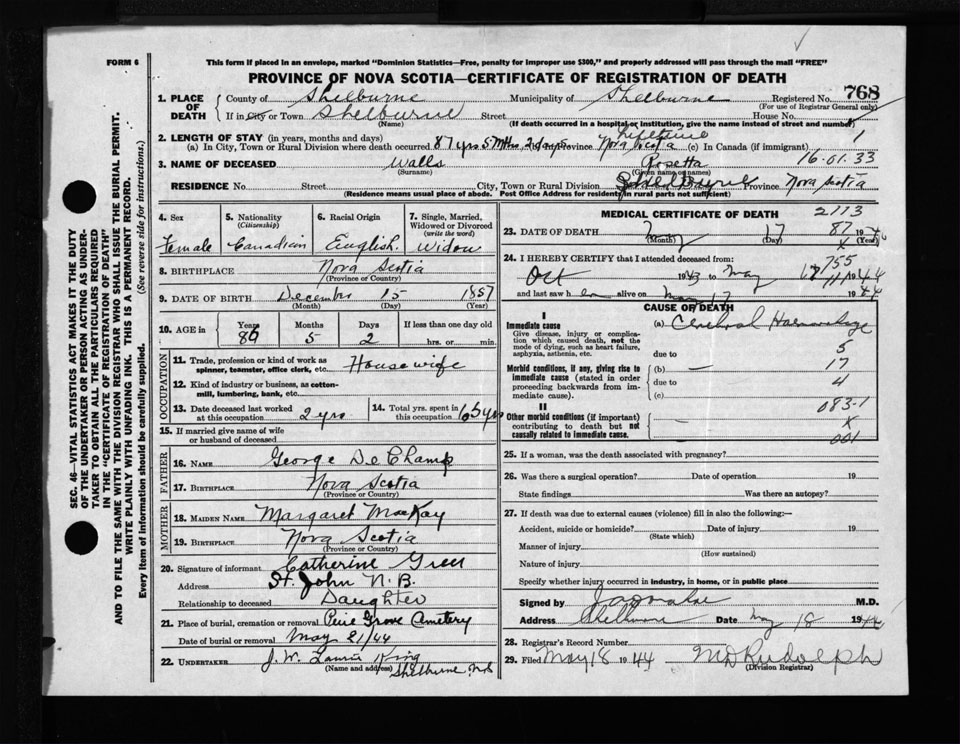 FORM 6
This form if placed in an envelope, marked "Dominion Statistics—Free, penalty for improper use $300," and properly addressed will pass through the mail "FREE"
PROVINCE OF NOVA SCOTIA—CERTIFICATE OF REGISTRATION OF DEATH
SEC. 46—VITAL STATISTICS ACT MAKES IT THE DUTY
OF THE UNDERTAKER OR PERSON ACTING AS UNDER-
TAKER TO OBTAIN ALL THE PARTICULARS REQUIRED
IN THE "CERTIFICATE OF REGISTRATION OF DEATH"
AND TO FILE THE SAME WITH THE DIVISION REGISTRAR WHO SHALL ISSUE THE BURIAL PERMIT.
WRITE PLAINLY WITH UNFADING INK. THIS IS A PERMANENT RECORD.
Every item of information should be carefully supplied. (See reverse side for instructions.)
1. PLACE OF DEATH
County of Shelburne Municipality of Shelburne Registered No. 768
(For use of Registrar General only)
If in City or Town Shelburne Street House No.
(Name) (If death occurred in a hospital or institution, give the name instead of street and number)
2. LENGTH OF STAY (in years, months and days) Lifetime 1
(a) In City, Town or Rural Division where death occurred 87 yrs 5 Mths 2 days Province Nova Scotia (c) In Canada (if immigrant)
3. NAME OF DECEASED Walls Rosetta 16.01.33
(Surname) (Given name or names)
RESIDENCE No. Street City, Town or Rural Division Province Nova Scotia
(Residence means usual place of abode. Post Office Address for residents in rural parts not sufficient)
4. Sex
Female
5. Nationality
(Citizenship)
Canadian
6. Racial Origin
English
7. Single, Married, Widowed or Divorced
(write the word)
Widow
8. BIRTHPLACE Nova Scotia
(Province or Country)
9. DATE OF BIRTH December 15 1857
(Month) (Day) (Year)
10. AGE in Years Months Days If less than one day old
5 2 hrs. or min.
OCCUPATION
11. Trade, profession or kind of work as spinner, teamster, office clerk, etc. Housewife
12. Kind of industry or business, as cotton-mill, lumbering, bank, etc.
13. Date deceased last worked at this occupation 2 yrs
14. Total yrs. spent in this occupation 65 yrs
15. If married give name of wife or husband of deceased
FATHER
16. NAME George De Champ
17. BIRTHPLACE Nova Scotia
(Province or Country)
MOTHER
18. MAIDEN NAME Margaret MacKay
19. BIRTHPLACE Nova Scotia
(Province or Country)
20. Signature of informant Catherine Green
Address St. John N.B.
Relationship to deceased Daughter
21. Place of burial, cremation or removal Pine Grove Cemetery
Date of burial or removal May 21/44
22. UNDERTAKER J. W. King
(Name and address) Shelburne, N.S
MEDICAL CERTIFICATE OF DEATH 2113
23. DATE OF DEATH May 17 87 19
(Month) (Day) (Year)
24. I HEREBY CERTIFY that I attended deceased from 755
Oct 1943 to May 17 1944
and last saw her alive on May 17 1944
CAUSE OF DEATH
I
Immediate cause (a) Cerebral Haemorrhage
Give disease, injury or complication which caused death, not the mode of dying, such as heart failure, asphyxia, asthenia, etc. due to 5
Morbid conditions, if any, giving rise to immediate cause (stated in order proceeding backwards from immediate cause). (b) — 17
due to 4
(c)
II
083-1
Other morbid conditions (if important) contributing to death but not causally related to immediate cause. X
001
25. If a woman, was the death associated with pregnancy?
26. Was there a surgical operation? Date of operation 19
State findings Was there an autopsy?
27. If death was due to external causes (violence) fill in also the following:—
Accident, suicide or homicide? Date of injury 19
(State which)
Manner of injury
(How sustained)
Nature of injury
Specify whether injury occurred in industry, in home, or in public place
Signed by M.D.
Address Shelburne Date May 18 1944
28. Registrar's Record Number
29. Filed May 18 1944 M D Rudolph
(Division Registrar)